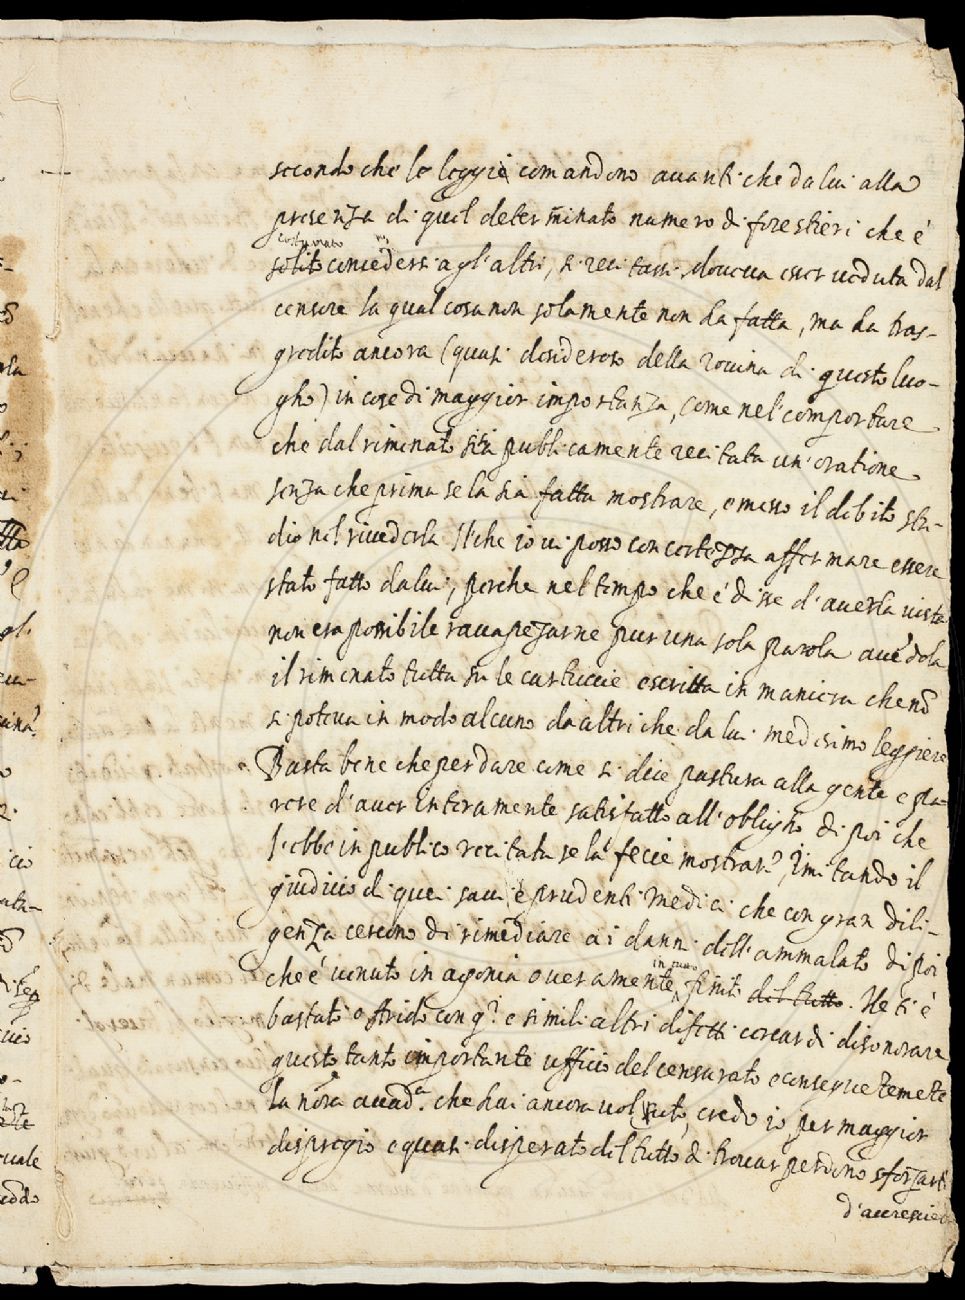 secondo che le leggi comandono auanti che da lui alla
presenza di quel determinato numero di forestieri che è
costumato
solito concedersi agl'altri, si recitassi, doueua esser ueduta dal
censore la qual cosa non solamente non ha fatta, ma ha tras-
gredito ancora (quasi desideroso della rouina di questo luo-
gho) in cose di maggior importanza, come nel comportare
che dal riminato sia publicamente recitata un'oratione
senza che prima se la sia fatta mostrare, e messo il debito stu-
dio nel riuederla Il che io ui posso con certezza affermare essere
stato fatto da lui, perche nel tempo che e' disse d'auerla uista
non era possibile raccapezarne pur una sola parola auēdola
il riminato tutta su le cartuccie e scritta in maniera che nō
si poteua in modo alcuno da altri che da lui medesimo leggiere
Basta bene che per dare come si dice pastura alla gente e pa-
rere d'auer interamente satisfatto all'obligho di poi che
l'ebbe in publico recitata se la fecie mostrar?, imitando il
giudicio di quei saui e prudenti medici che con gran dili-
genza cercono di rimediare ai danni dell'ammalato di poi
che è uenuto in agonia o ueramente finito del tutto. Ne ti è
bastato o Arido con q.ti e simili altri difetti cercar di disonorare
questo tanto importante ufficio del censurato e conseguētemēte
la nōra accad.a che hai ancora voluto, credo io per maggior
dispregio e quasi disperato del tutto di trouar perdono sforzarti
d'accrescie